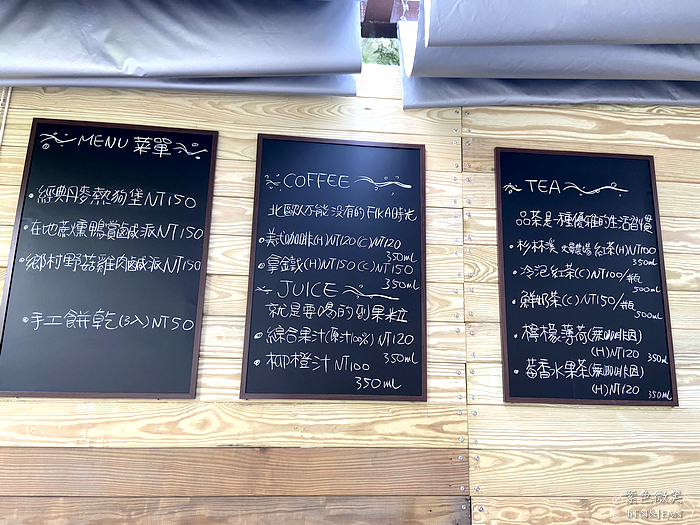 MENU 菜單
經典丹麥熱狗堡NT150
在地蔗燻鴨賞鹹派NT150
鄉村野菇雞肉鹹派NT150
手工餅乾(3入)NT50
COFFEE
北歐人不能沒有的FIKA時光
美式咖啡(H)NT120(C)NT120
350ml
拿鐵(H)NT150(C)NT150
350ml
JUICE
就是要喝的到果粒
綜合果汁(原汁100%)NT120
350ml
柳橙汁NT100
350ml
TEA
品茶是一種優雅的生活習慣
紅茶(H)NT100
350ml
冷泡紅茶(C)NT100/瓶
500ml
鮮奶茶(C)NT150/瓶
500ml
檸檬薄荷(無咖啡因)
(H)NT120 350ml
莓香水果茶(無咖啡因)
(H)NT120 350ml
紫色微笑
BENJEAN